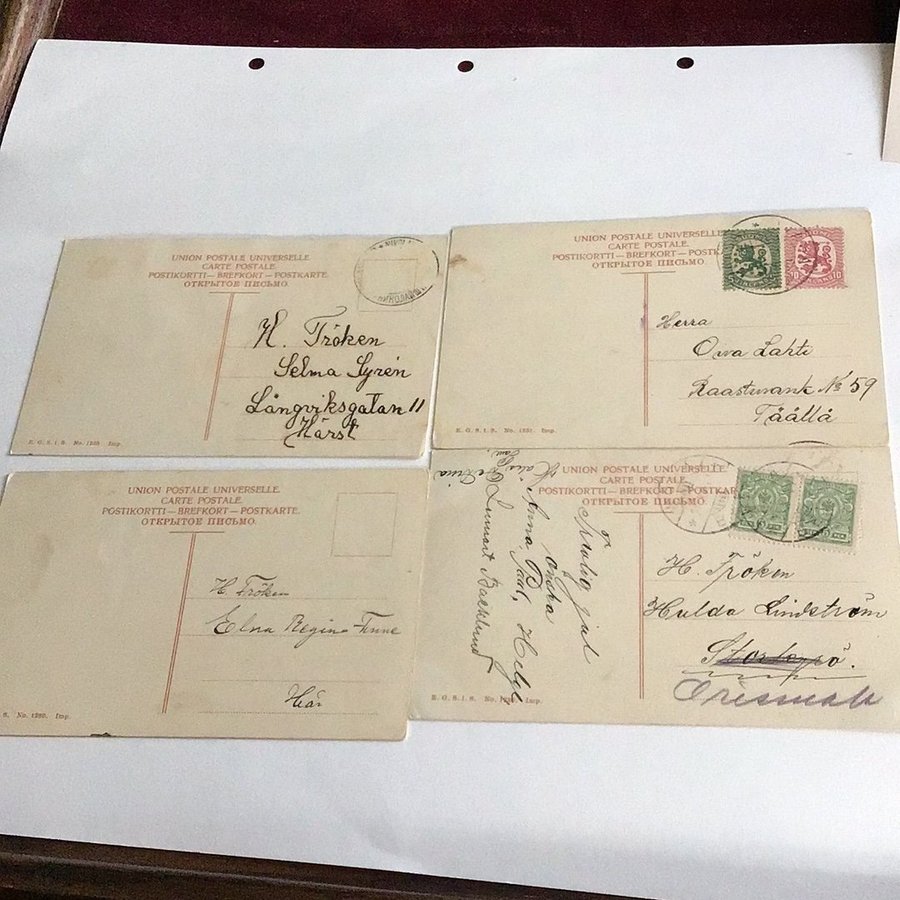 UNION POSTALE UNIVERSELLE.
CARTE POSTALE.
POSTIKORTTI — BREFKORT — POSTKARTE.
ОТКРЫТОЕ ПИСЬМО.
H. Fröken
Selma Syrén
Långviksgatan 11
Härst
E. G. S. i. S. No. Imp.
UNION POSTALE UNIVERSELLE
CARTE POSTALE.
POSTIKORTTI — BREFKORT — POSTK
ОТКРЫТОЕ ПИСЬМО
10 10
Herra
Oiva Lahti
№ 59
Täällä
E. G. S. i. S. No. Imp.
UNION POSTALE UNIVERSELLE.
CARTE POSTALE.
POSTIKORTTI — BREFKORT — POSTKARTE.
ОТКРЫТОЕ ПИСЬМО.
H. Fröken
Elna Regina
Här
S. No. Imp.
UNION POSTALE UNIVERSELLE.
CARTE POSTALE.
POSTIKORTTI — BREFKORT — POSTKAR
ОТКРЫТОЕ ПИСЬМО.
En
jul
önska
Anna
Helge
Lennart Backlund
H. Fröken
Hulda Lindström
E. G. S. i. S. No. Imp.